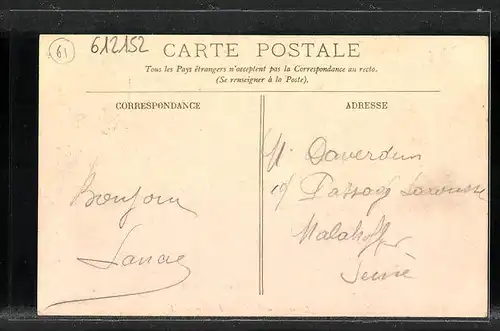 61
612152
CARTE POSTALE
Tous les Pays étrangers n'acceptent pas la Correspondance au recto.
(Se renseigner à la Poste).
CORRESPONDANCE
ADRESSE
Bonjour
M. Daverdun
Passage Larousse
Malakoff
Seine